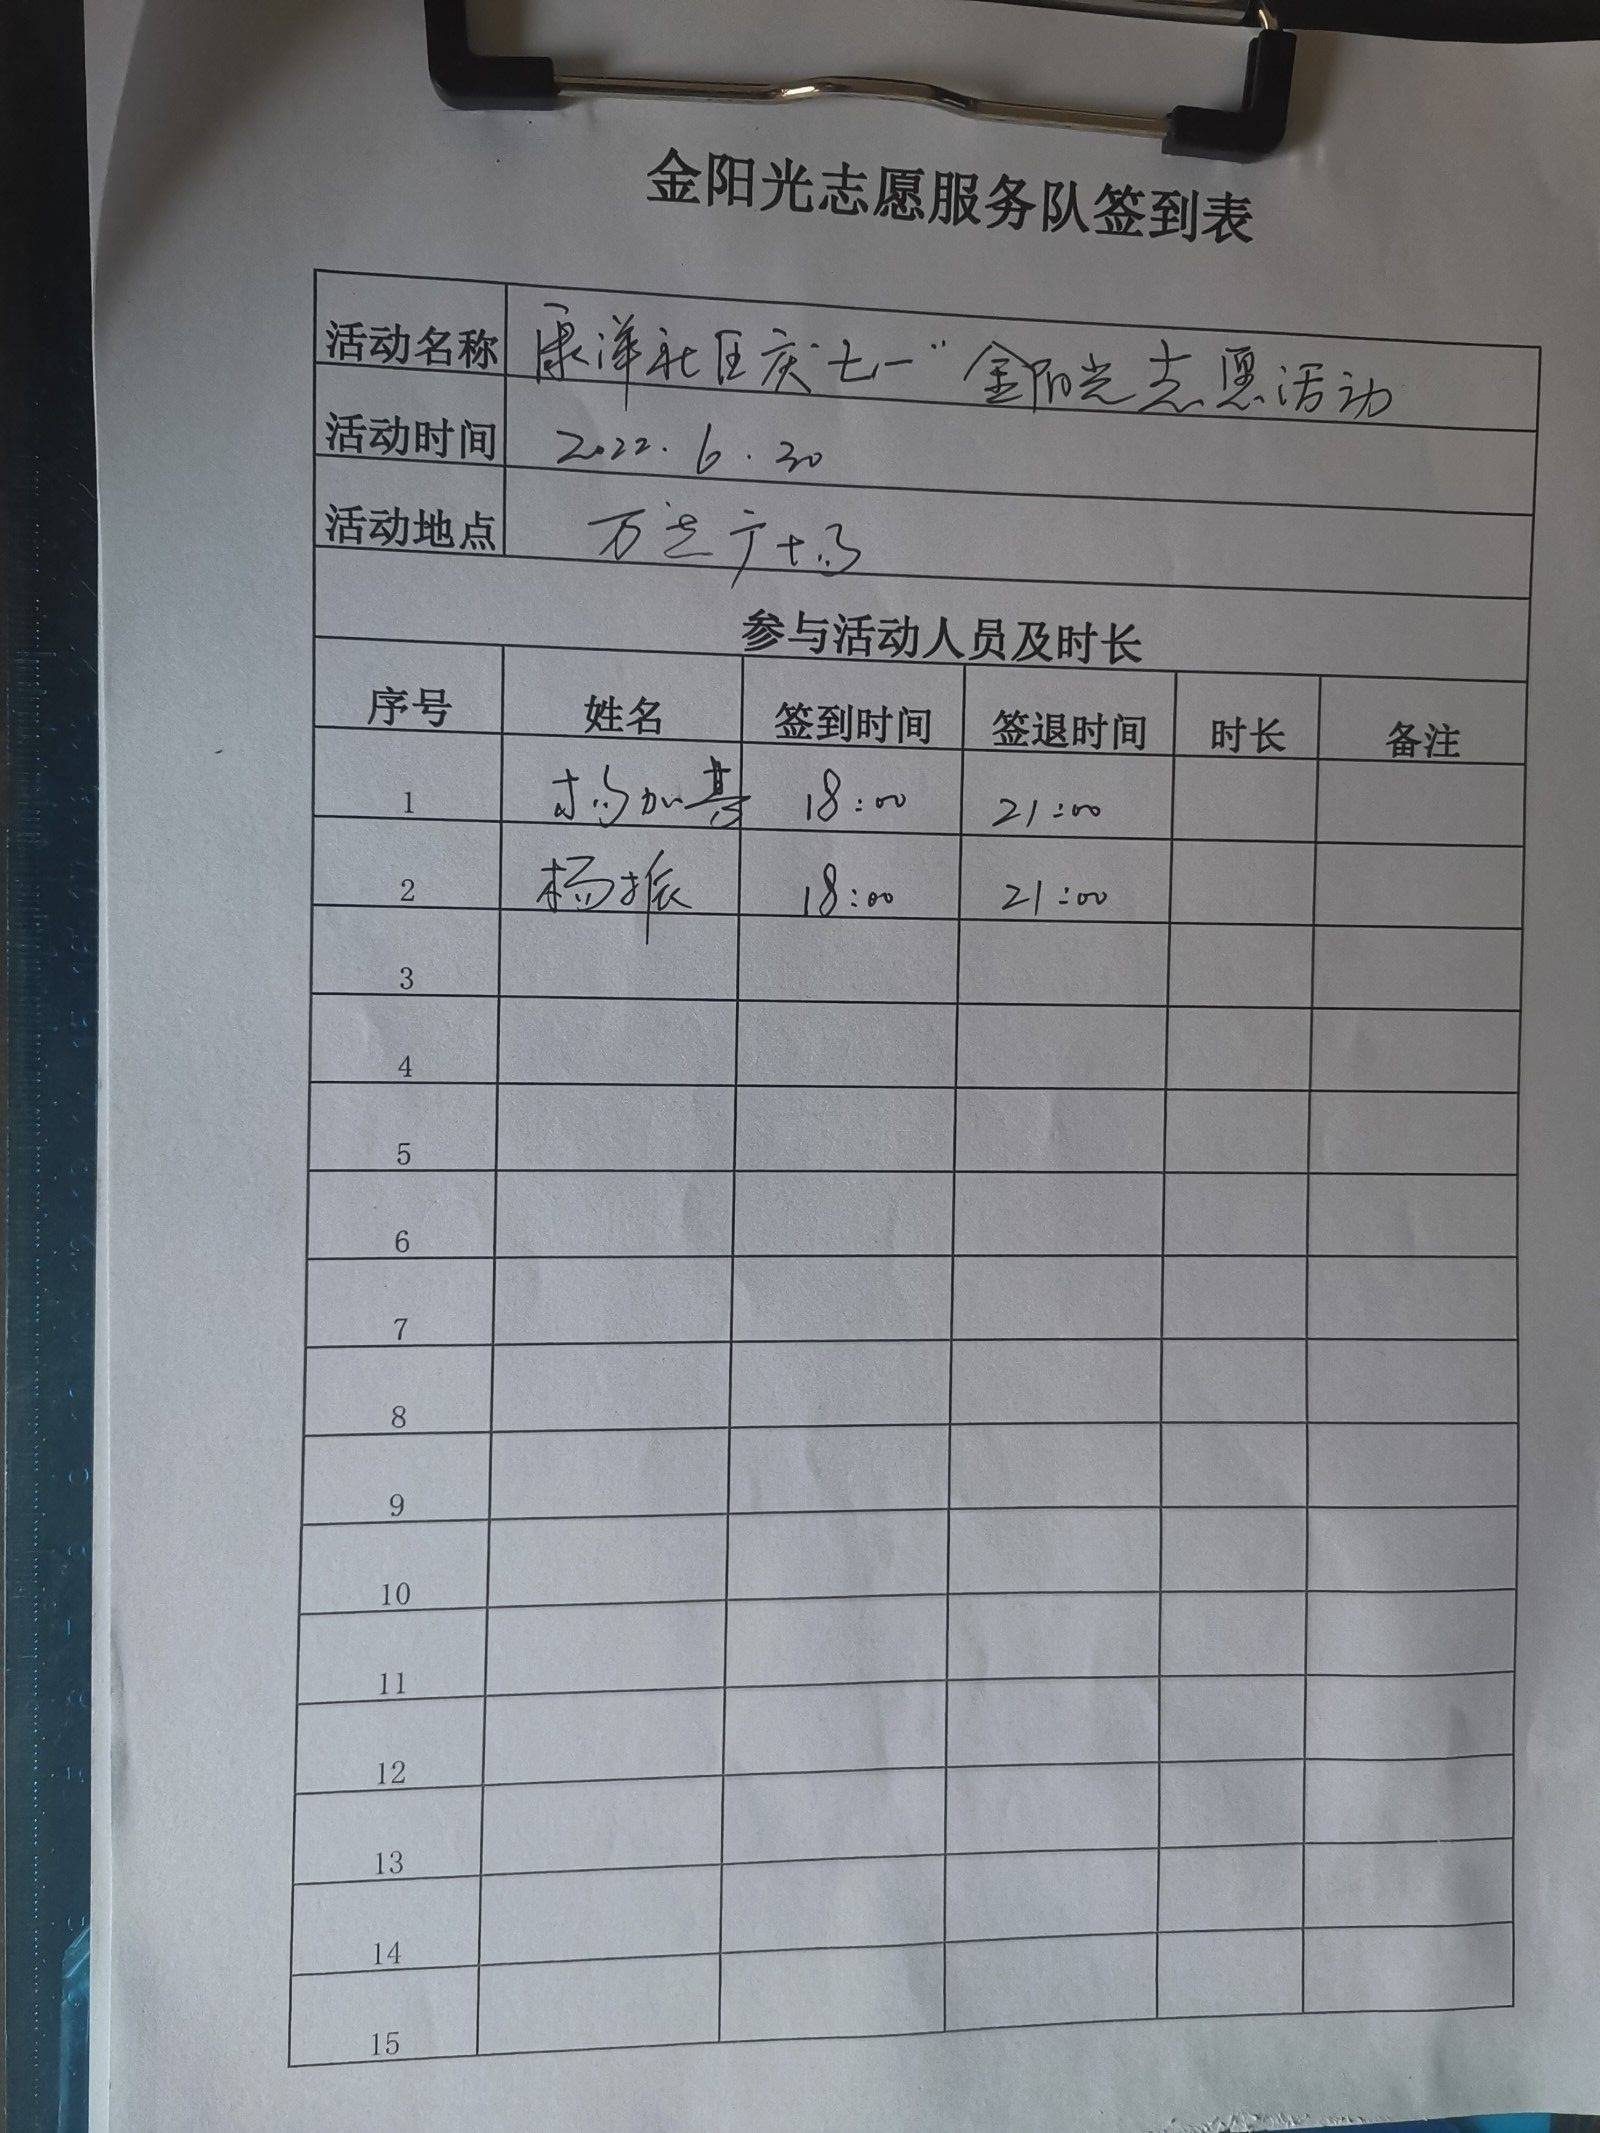 金阳光志愿服务队签到表
活动名称 康洋社区庆"七一"金阳光志愿活动
活动时间 2022.6.30
活动地点 万达广场
参与活动人员及时长
序号 姓名 签到时间 签退时间 时长 备注
1 杨加基 18:00 21:00
2 杨振 18:00 21:00
3
4
5
6
7
8
9
10
11
12
13
14
15